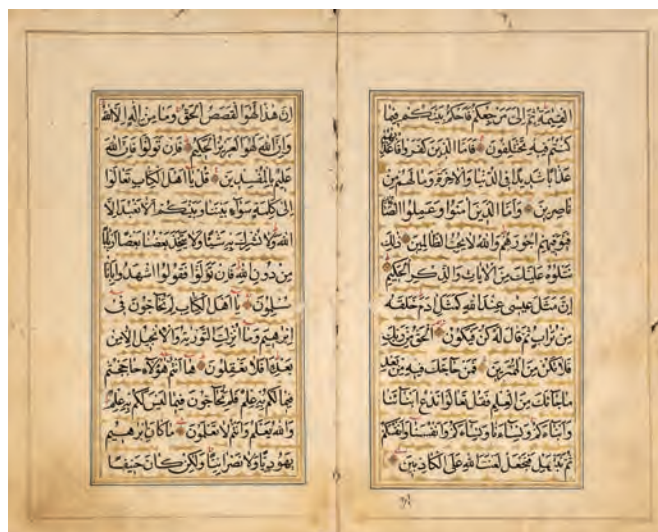 القيمة ثم الى مرجعكم فاحكم بينكم فيما
كنتم فيه تختلفون فاما الذين كفروا فاعذبهم
عذابا شديدا في الدنيا والاخرة وما لهم من
ناصرين واما الذين امنوا وعملوا الصالحات
فيوفيهم اجورهم والله لا يحب الظالمين ذلك
نتلوه عليك من الايات والذكر الحكيم
ان مثل عيسى عند الله كمثل ادم خلقه
من تراب ثم قال له كن فيكون الحق من ربك
فلا تكن من الممترين فمن حاجك فيه من بعد
ما جاءك من العلم فقل تعالوا ندع ابناءنا
وابناءكم ونساءنا ونساءكم وانفسنا وانفسكم
ثم نبتهل فنجعل لعنت الله على الكاذبين
ان هذا لهو القصص الحق وما من اله الا الله
وان الله لهو العزيز الحكيم فان تولوا فان الله
عليم بالمفسدين قل يا اهل الكتاب تعالوا
الى كلمة سواء بيننا وبينكم الا نعبد الا
الله ولا نشرك به شيئا ولا يتخذ بعضنا بعضا اربابا
من دون الله فان تولوا فقولوا اشهدوا بانا
مسلمون يا اهل الكتاب لم تحاجون في
ابرهيم وما انزلت التورية والانجيل الا من
بعده افلا تعقلون ها انتم هؤلاء حاججتم
فيما لكم به علم فلم تحاجون فيما ليس لكم به علم
والله يعلم وانتم لا تعلمون ما كان ابرهيم
يهوديا ولا نصرانيا ولكن كان حنيفا